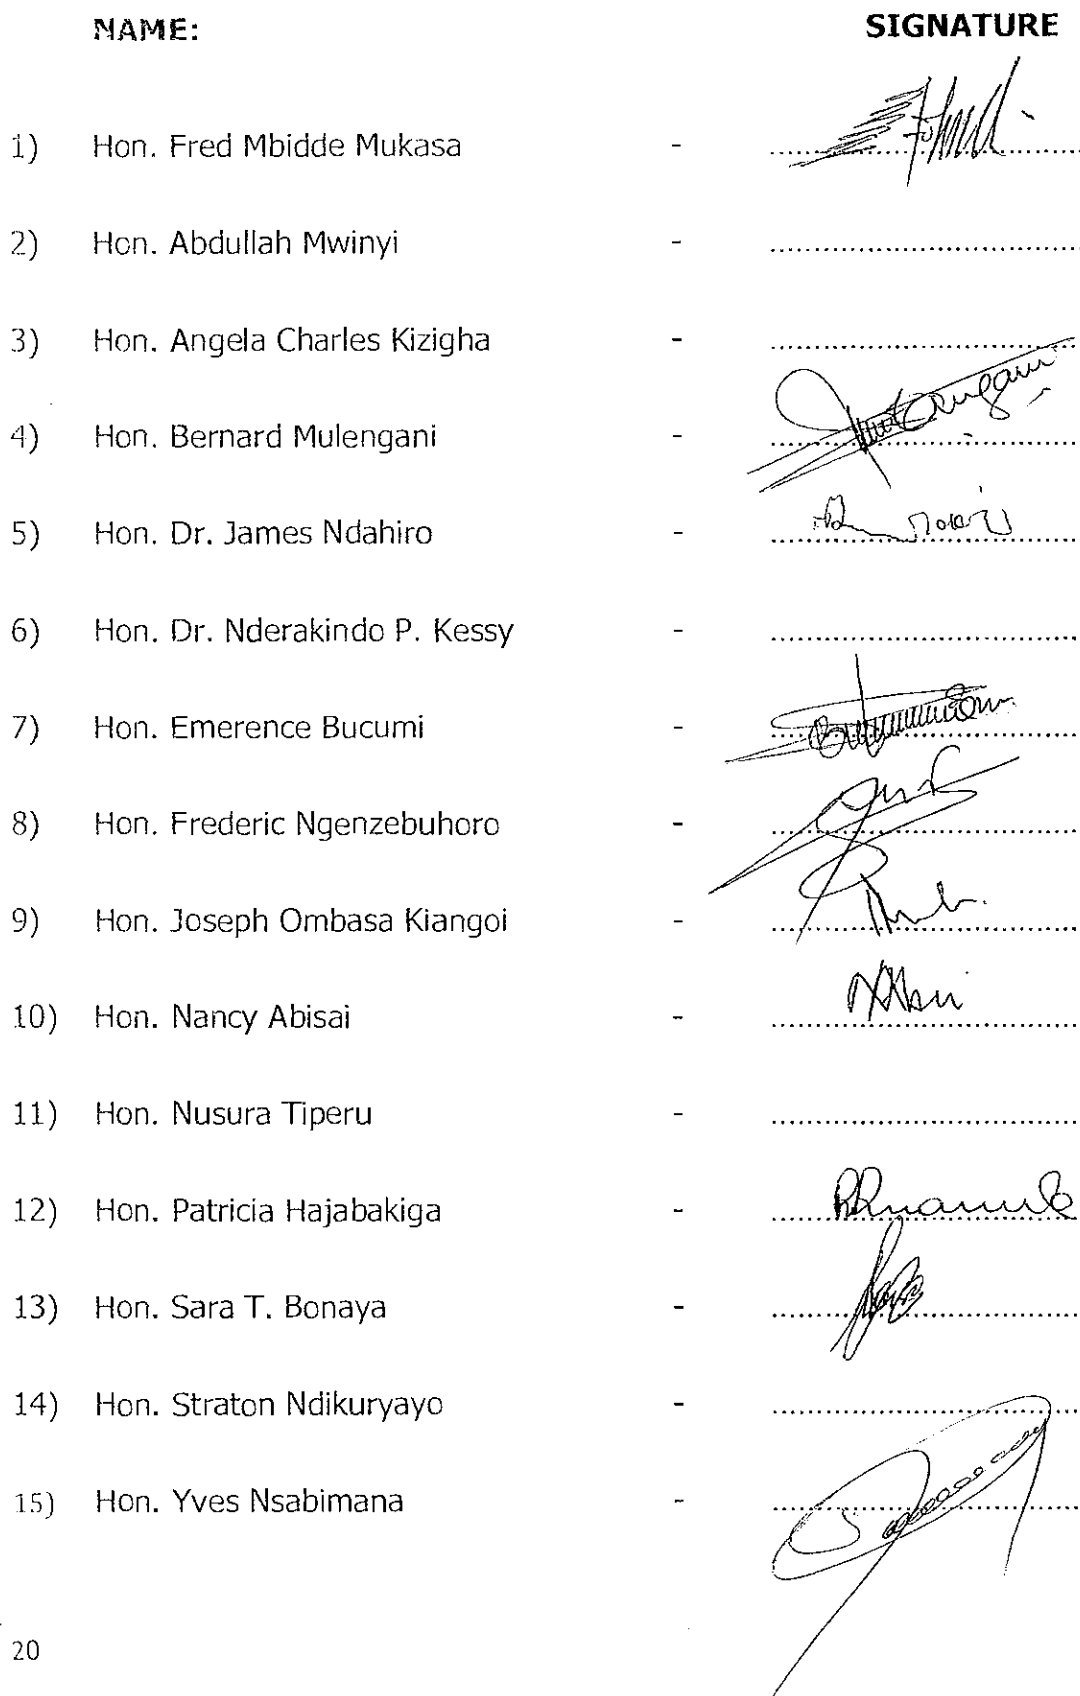 NAME: SIGNATURE
1) Hon. Fred Mbidde Mukasa - ..............................
2) Hon. Abdullah Mwinyi - ..............................
3) Hon. Angela Charles Kizigha - ..............................
4) Hon. Bernard Mulengani - ..............................
5) Hon. Dr. James Ndahiro - ..............................
6) Hon. Dr. Nderakindo P. Kessy - ..............................
7) Hon. Emerence Bucumi - ..............................
8) Hon. Frederic Ngenzebuhoro - ..............................
9) Hon. Joseph Ombasa Kiangoi - ..............................
10) Hon. Nancy Abisai - ..............................
11) Hon. Nusura Tiperu - ..............................
12) Hon. Patricia Hajabakiga - ..............................
13) Hon. Sara T. Bonaya - ..............................
14) Hon. Straton Ndikuryayo - ..............................
15) Hon. Yves Nsabimana - ..............................
20